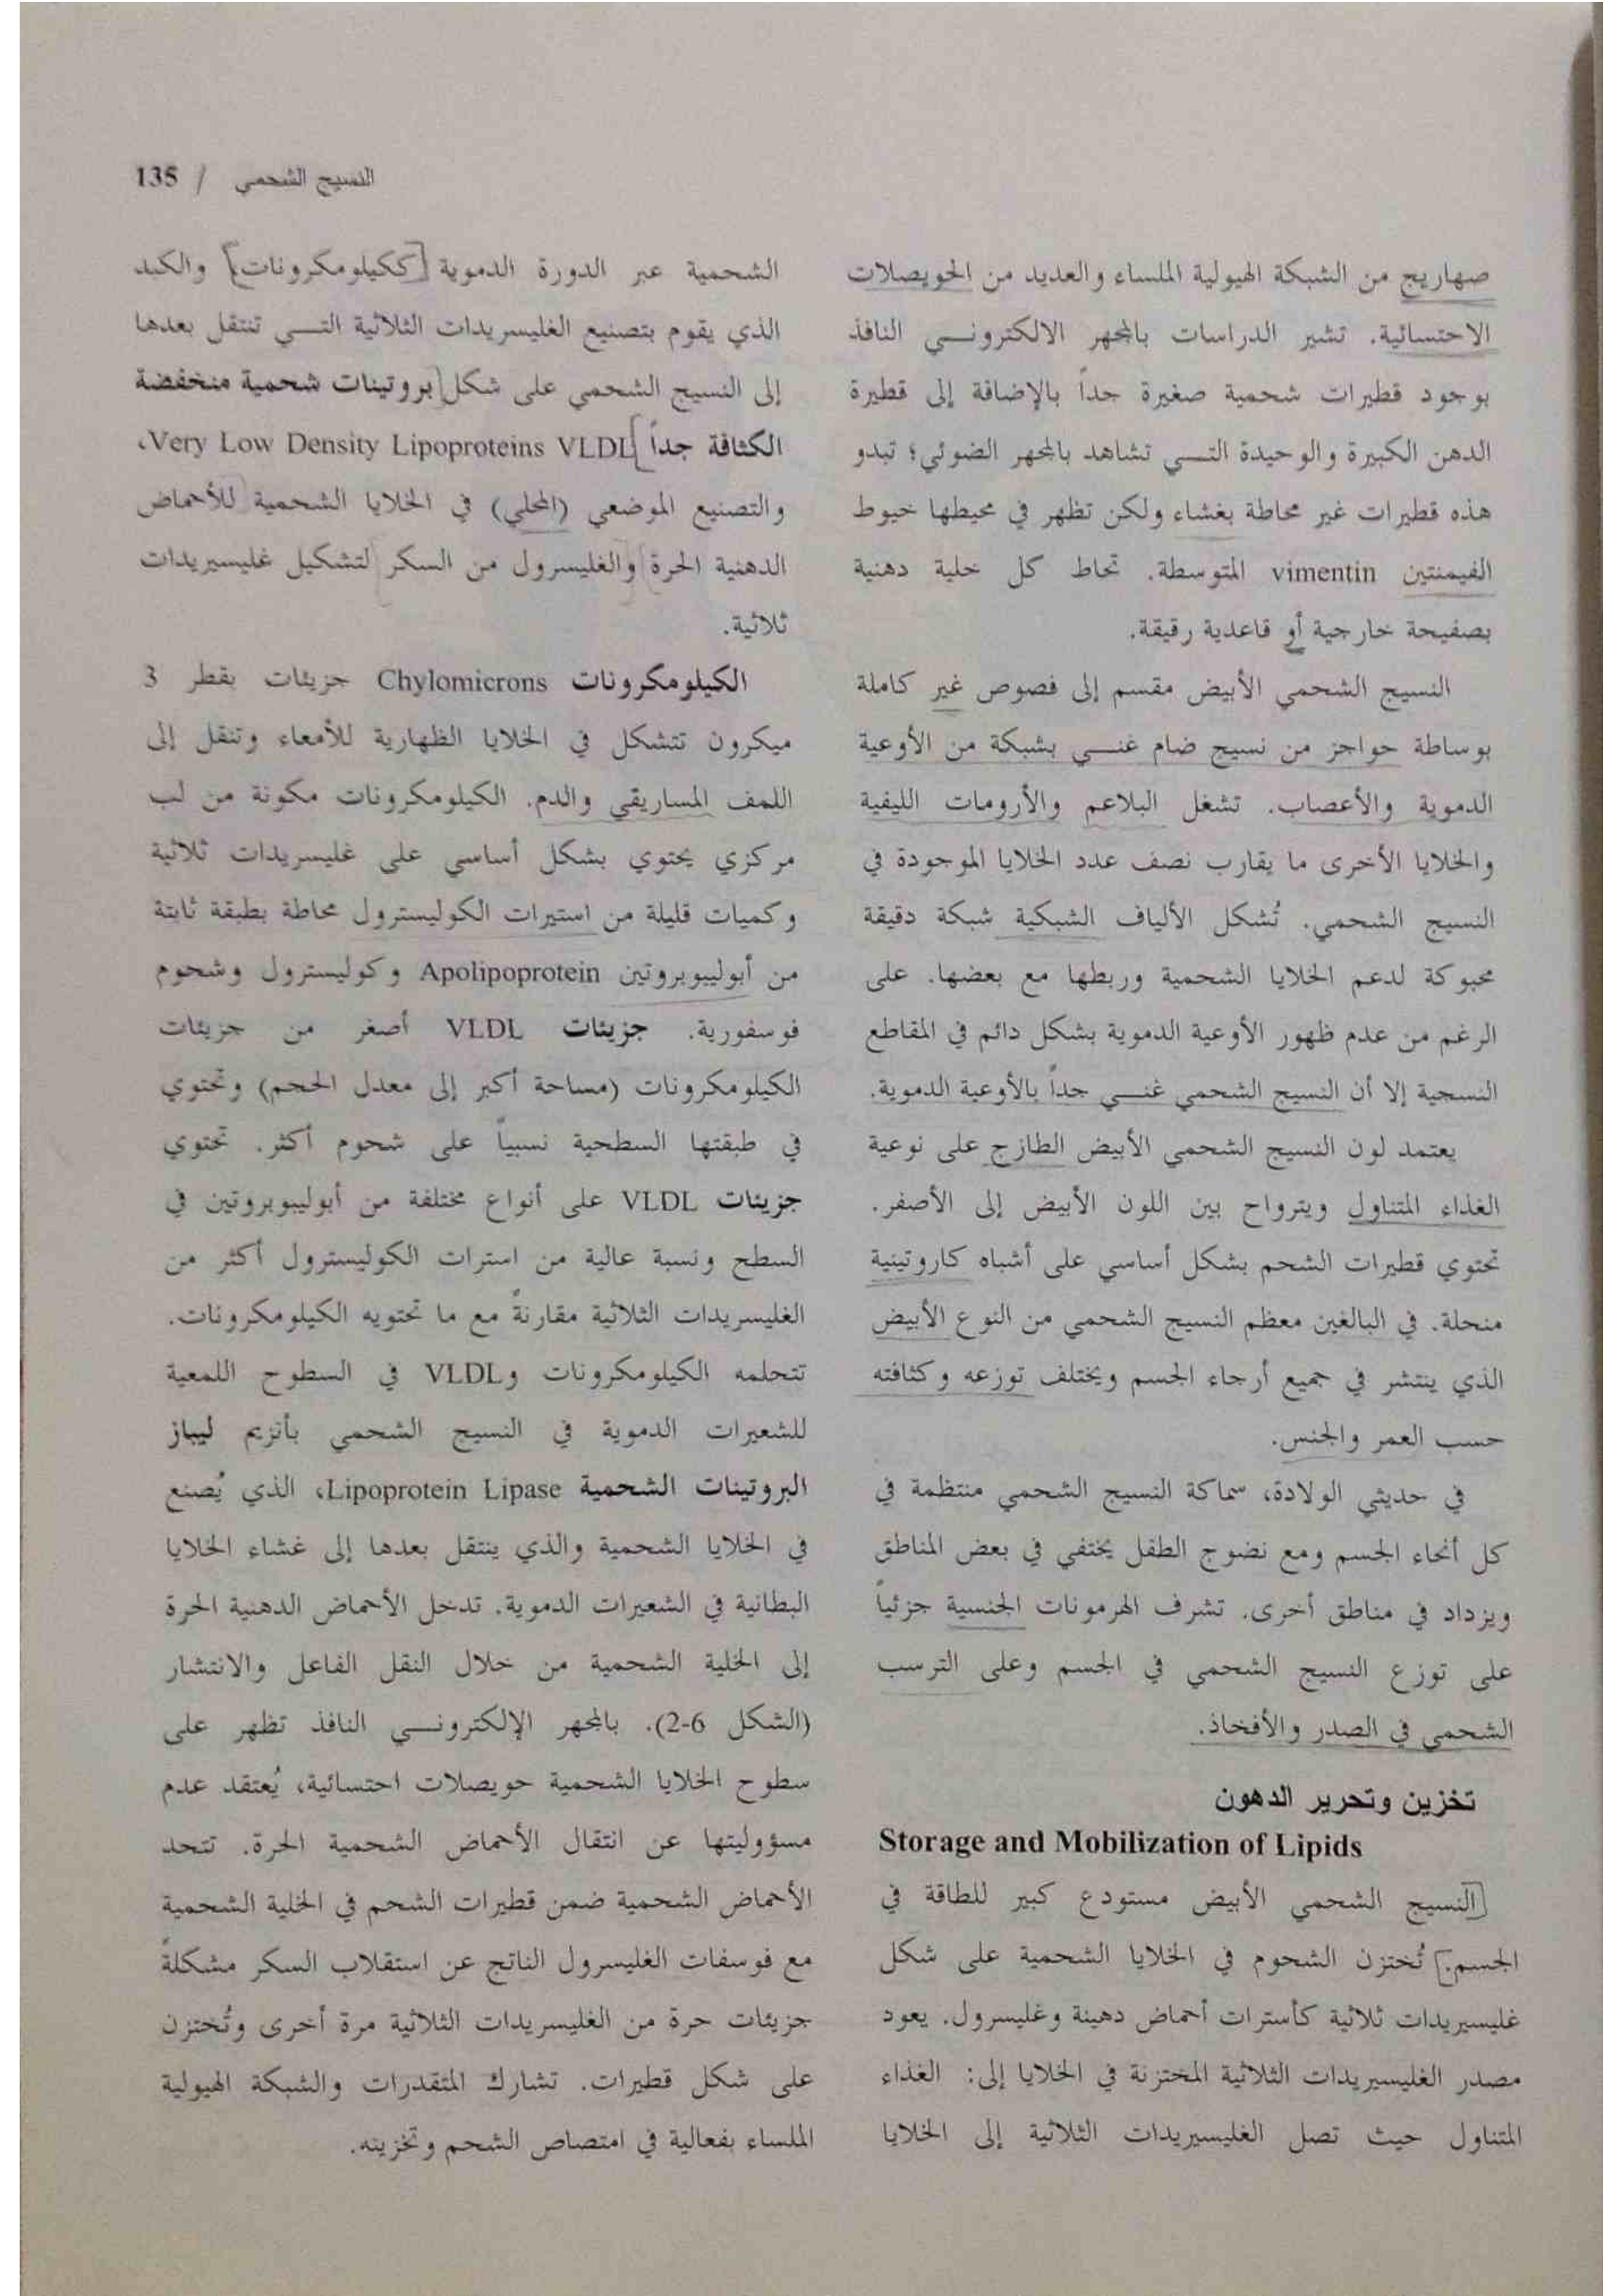 النسيج الشحمي / 135
صهاريج من الشبكة الهيولية الملساء والعديد من الحويصلات
الاحتسائية. تشير الدراسات بالمجهر الالكتروني النافذ
بوجود قطيرات شحمية صغيرة جداً بالإضافة إلى قطيرة
الدهن الكبيرة والوحيدة التي تشاهد بالمجهر الضوئي؛ تبدو
هذه قطيرات غير محاطة بغشاء ولكن تظهر في محيطها خيوط
الفيمنتين vimentin المتوسطة. تحاط كل خلية دهنية
بصفيحة خارجية أو قاعدية رقيقة.
النسيج الشحمي الأبيض مقسم إلى فصوص غير كاملة
بوساطة حواجز من نسيج ضام غني بشبكة من الأوعية
الدموية والأعصاب. تشغل البلاعم والأرومات الليفية
والخلايا الأخرى ما يقارب نصف عدد الخلايا الموجودة في
النسيج الشحمي. تُشكل الألياف الشبكية شبكة دقيقة
محبوكة لدعم الخلايا الشحمية وربطها مع بعضها. على
الرغم من عدم ظهور الأوعية الدموية بشكل دائم في المقاطع
النسجية إلا أن النسيج الشحمي غني جداً بالأوعية الدموية.
يعتمد لون النسيج الشحمي الأبيض الطازج على نوعية
الغذاء المتناول ويترواح بين اللون الأبيض إلى الأصفر.
تحتوي قطيرات الشحم بشكل أساسي على أشباه كاروتينية
منحلة. في البالغين معظم النسيج الشحمي من النوع الأبيض
الذي ينتشر في جميع أرجاء الجسم ويختلف توزعه وكثافته
حسب العمر والجنس.
في حديثي الولادة، سماكة النسيج الشحمي منتظمة في
كل أنحاء الجسم ومع نضوج الطفل يختفي في بعض المناطق
ويزداد في مناطق أخرى. تشرف الهرمونات الجنسية جزئياً
على توزع النسيج الشحمي في الجسم وعلى الترسب
الشحمي في الصدر والأفخاذ.
تخزين وتحرير الدهون
Storage and Mobilization of Lipids
[النسيج الشحمي الأبيض مستودع كبير للطاقة في
الجسم.] تُختزن الشحوم في الخلايا الشحمية على شكل
غليسيريدات ثلاثية كأسترات أحماض دهينة وغليسرول. يعود
مصدر الغليسيريدات الثلاثية المختزنة في الخلايا إلى: الغذاء
المتناول حيث تصل الغليسيريدات الثلاثية إلى الخلايا
الشحمية عبر الدورة الدموية [ككيلومكرونات] والكبد
الذي يقوم بتصنيع الغليسريدات الثلاثية التي تنتقل بعدها
إلى النسيج الشحمي على شكل [بروتينات شحمية منخفضة
الكثافة جداً] Very Low Density Lipoproteins VLDL،
والتصنيع الموضعي (المحلي) في الخلايا الشحمية للأحماض
الدهنية الحرة والغليسرول من السكر لتشكيل غليسيريدات
ثلاثية.
الكيلومكرونات Chylomicrons جزيئات بقطر 3
ميكرون تتشكل في الخلايا الظهارية للأمعاء وتنقل إلى
اللمف المساريقي والدم. الكيلومكرونات مكونة من لب
مركزي يحتوي بشكل أساسي على غليسريدات ثلاثية
وكميات قليلة من استيرات الكوليسترول محاطة بطبقة ثابتة
من أبوليبوبروتين Apolipoprotein وكوليسترول وشحوم
فوسفورية. جزيئات VLDL أصغر من جزيئات
الكيلومكرونات (مساحة أكبر إلى معدل الحجم) وتحتوي
في طبقتها السطحية نسبياً على شحوم أكثر. تحتوي
جزيئات VLDL على أنواع مختلفة من أبوليبوبروتين في
السطح ونسبة عالية من استرات الكوليسترول أكثر من
الغليسريدات الثلاثية مقارنةً مع ما تحتويه الكيلومكرونات.
تتحلمه الكيلومكرونات وVLDL في السطوح اللمعية
للشعيرات الدموية في النسيج الشحمي بأنزيم ليباز
البروتينات الشحمية Lipoprotein Lipase، الذي يُصنع
في الخلايا الشحمية والذي ينتقل بعدها إلى غشاء الخلايا
البطانية في الشعيرات الدموية. تدخل الأحماض الدهنية الحرة
إلى الخلية الشحمية من خلال النقل الفاعل والانتشار
(الشكل 6-2). بالمجهر الإلكتروني النافذ تظهر على
سطوح الخلايا الشحمية حويصلات احتسائية، يُعتقد عدم
مسؤوليتها عن انتقال الأحماض الشحمية الحرة. تتحد
الأحماض الشحمية ضمن قطيرات الشحم في الخلية الشحمية
مع فوسفات الغليسرول الناتج عن استقلاب السكر مشكلةً
جزيئات حرة من الغليسريدات الثلاثية مرة أخرى وتُختزن
على شكل قطيرات. تشارك المتقدرات والشبكة الهيولية
الملساء بفعالية في امتصاص الشحم وتخزينه.